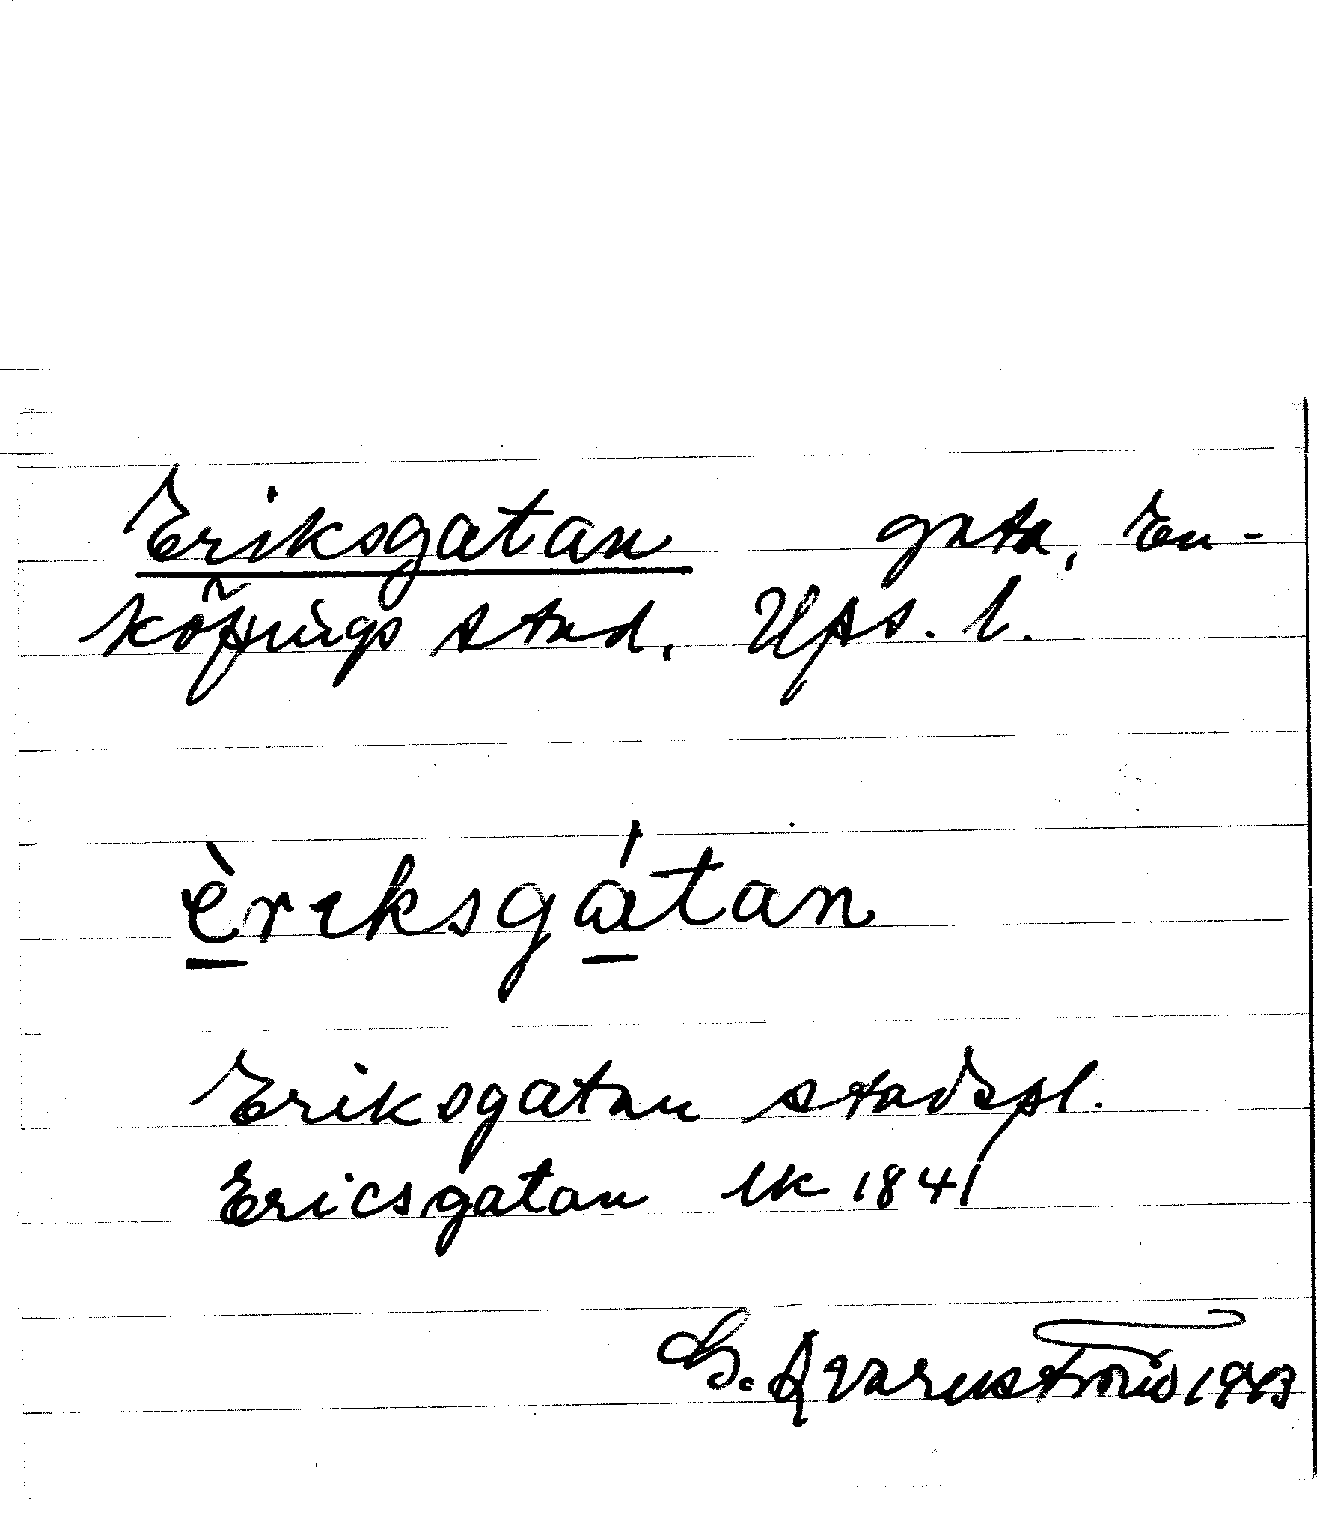 Eriksgatan gata, En-
köpings stad, Ups. l.
èriksgátan
Eriksgatan stadspl.
Ericsgatan lk 1841
G. Qvarnström 1943